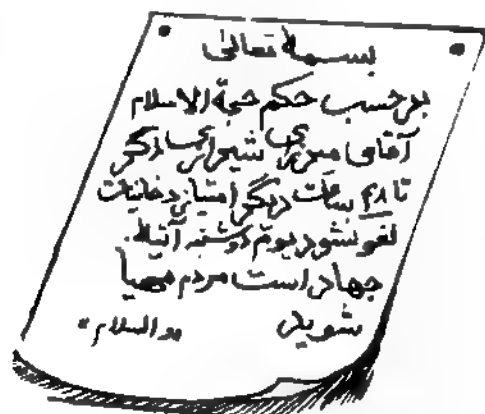 بسمه تعالی
برحسب حکم حجة الاسلام
آقای میرزای شیرازی اگر
تا ۴۸ ساعت دیگر امتیاز دخانیات
لغو نشود یوم دوشنبه آتیه
جهاد است مردم مهیا
شوید والسلام